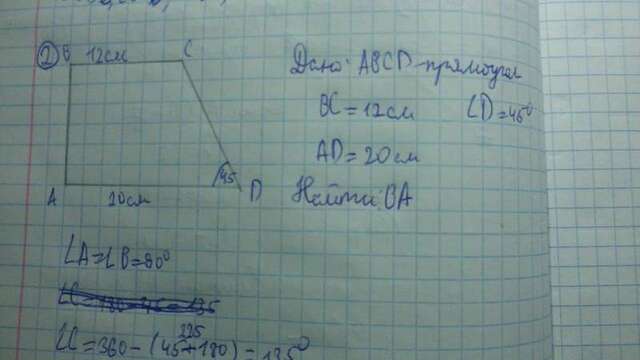 ② B 12см C
A 20см 45 D
Дано: ABCD-прямоугол
BC = 12см ∠D = 45°
AD = 20см
Найти: BA
∠A = ∠B = 90°
225
∠C = 360 - (45 + 180) = 135°